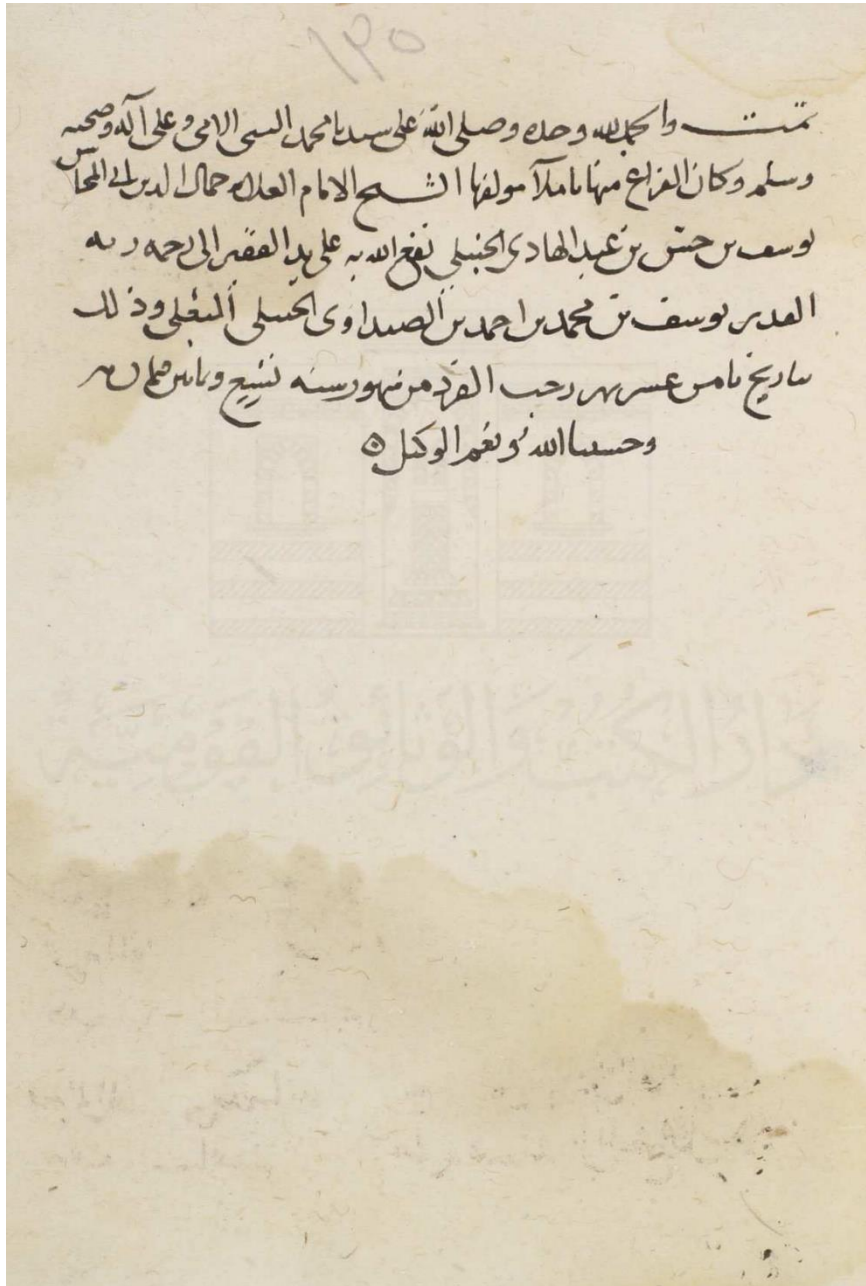 ٥٩٠
تمت والحمد لله وحده وصلى الله على سيدنا محمد النبي الامي وعلى آله وصحبه
وسلم وكان الفراغ منها باملآ مولفها الشيخ الامام العلامه جمال الدين ابي المحاسن
يوسف بن حسن بن عبد الهادي الحنبلي نفع الله به على يد الفقير الى رحمة ربه
القدير يوسف بن محمد بن احمد بن الصيداوي الحنبلي وذلك
بتاريخ ثامن عشر شهر رجب الفرد من شهور سنه وثمانين
وحسبنا الله ونعم الوكيل
دار الكتب والوثائق القومية